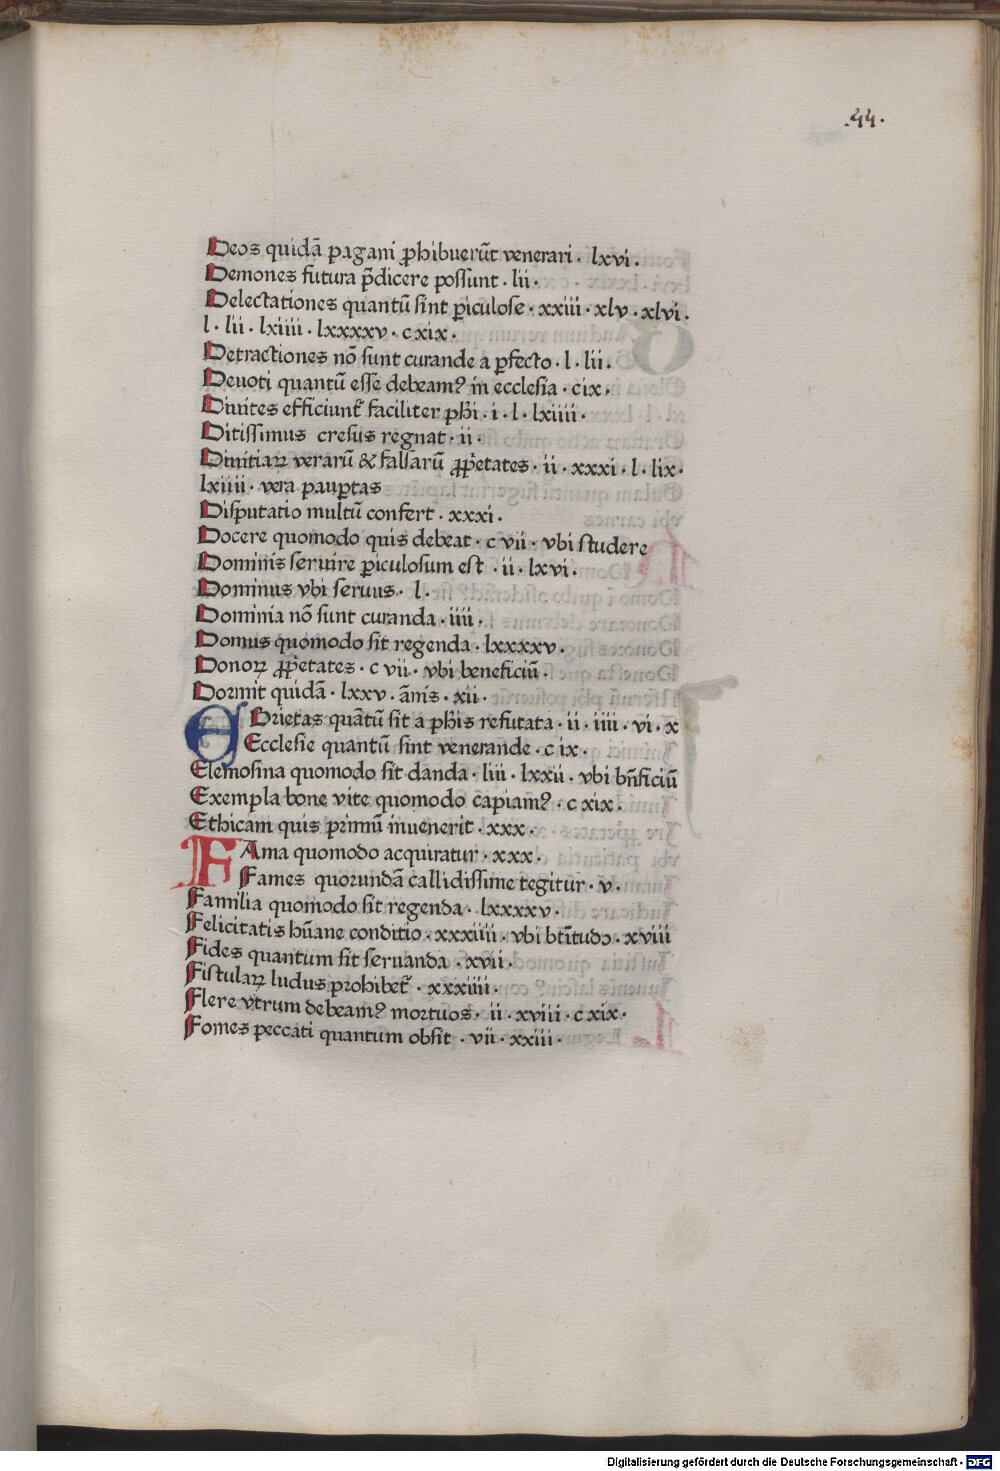 .44.
Deos quidā pagani ꝓhibuerūt venerari · lxvi ·
Demones futura p̄dicere possunt · lii ·
Delectationes quantū sint ꝑiculose · xxiii · xlv · xlvi ·
l · lii · lxiiii · lxxxxv · c xix ·
Detractiones nō sunt curande a ꝑfecto · l · lii ·
Deuoti quantū esse debeamꝰ in ecclesia · cix ·
Diuites efficiunt᷑ faciliter ph̄i · i · l · lxiiii ·
Ditissimus cresus regnat · ii ·
Diuitiaꝝ verarū & falsarū ꝓp̄etates · ii · xxxi · l · lix ·
lxiiii · vera pauꝑtas
Disputatio multū confert · xxxi ·
Docere quomodo quis debeat · c vii · vbi studere
Dominis seruire ꝑiculosum est · ii · lxvi ·
Dominus vbi seruus · l ·
Dominia nō sunt curanda · iiii ·
Domus quomodo sit regenda · lxxxxv ·
Donoꝝ ꝓp̄etates · c vii · vbi beneficiū ·
Dormit quidā · lxxv · ānis · xii ·
EBrietas quātū sit a ph̄is refutata · ii · iiii · vi · x
Ecclesie quantū sint venerande · c ix ·
Elemosina quomodo sit danda · liii · lxxii · vbi bn̄ficiū
Exempla bone vite quomodo capiamꝰ · c xix ·
Ethicam quis primū inuenerit · xxx ·
FAma quomodo acquiratur · xxx ·
Fames quorundā callidissime tegitur · v ·
Familia quomodo sit regenda · lxxxxv ·
Felicitatis hūane conditio · xxxiiii · vbi bt̄itudo · xviii
Fides quantum sit seruanda · xvii ·
Fistulaꝝ ludus prohibet᷑ · xxxiiii ·
Flere vtrum debeamꝰ mortuos · ii · xviii · c xix ·
Fomes peccati quantum obsit · vii · xxiii ·
Digitalisierung gefördert durch die Deutsche Forschungsgemeinschaft - DFG